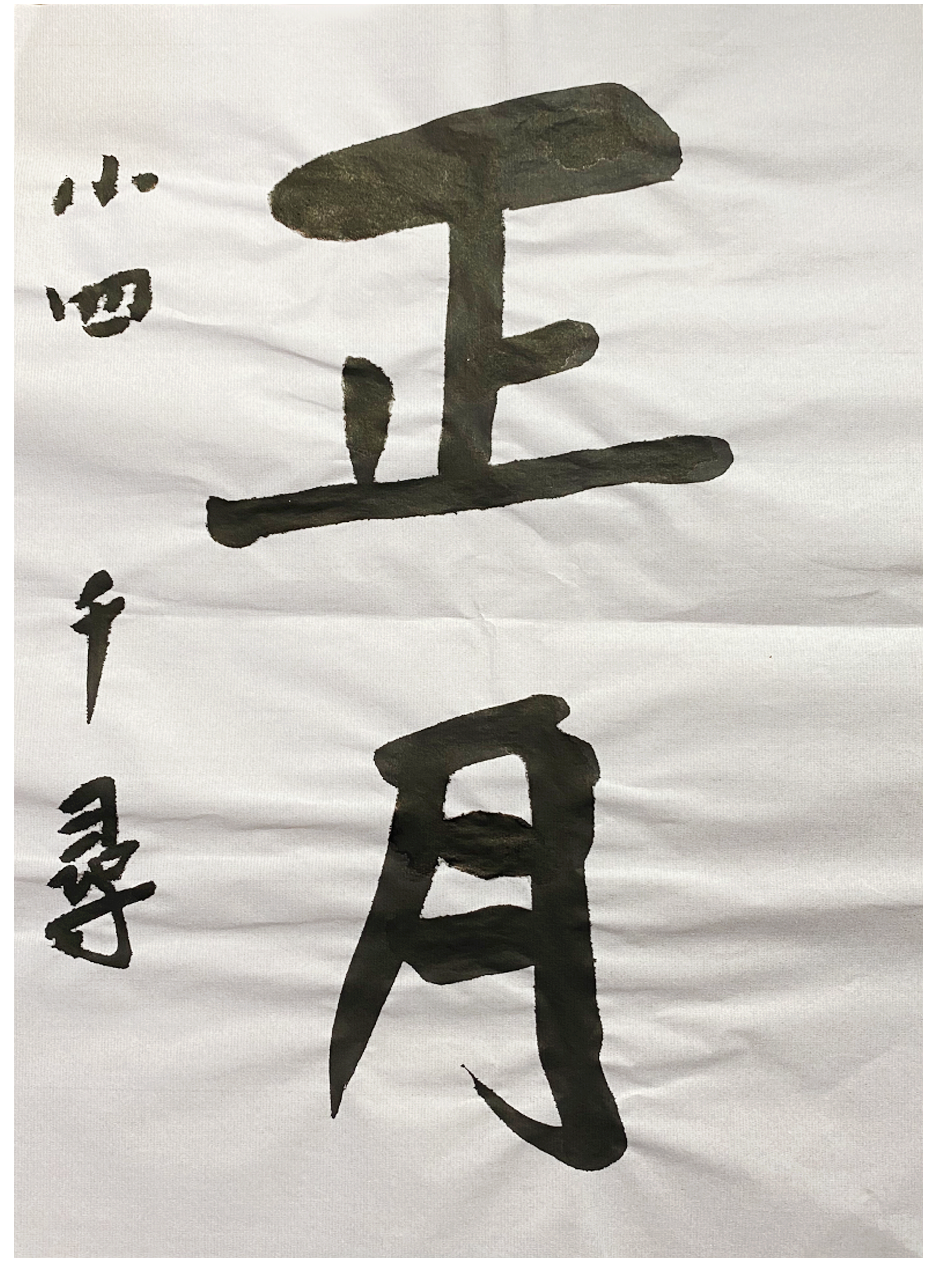 正月
小四 千尋